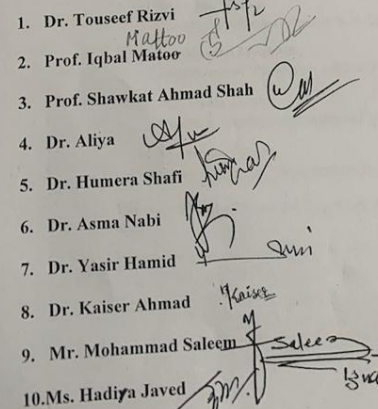 1. Dr. Touseef Rizvi
Mattoo
2. Prof. Iqbal Matoo
3. Prof. Shawkat Ahmad Shah
4. Dr. Aliya
5. Dr. Humera Shafi
6. Dr. Asma Nabi
7. Dr. Yasir Hamid
8. Dr. Kaiser Ahmad Kaiser
9. Mr. Mohammad Saleem Saleem
10.Ms. Hadiya Javed